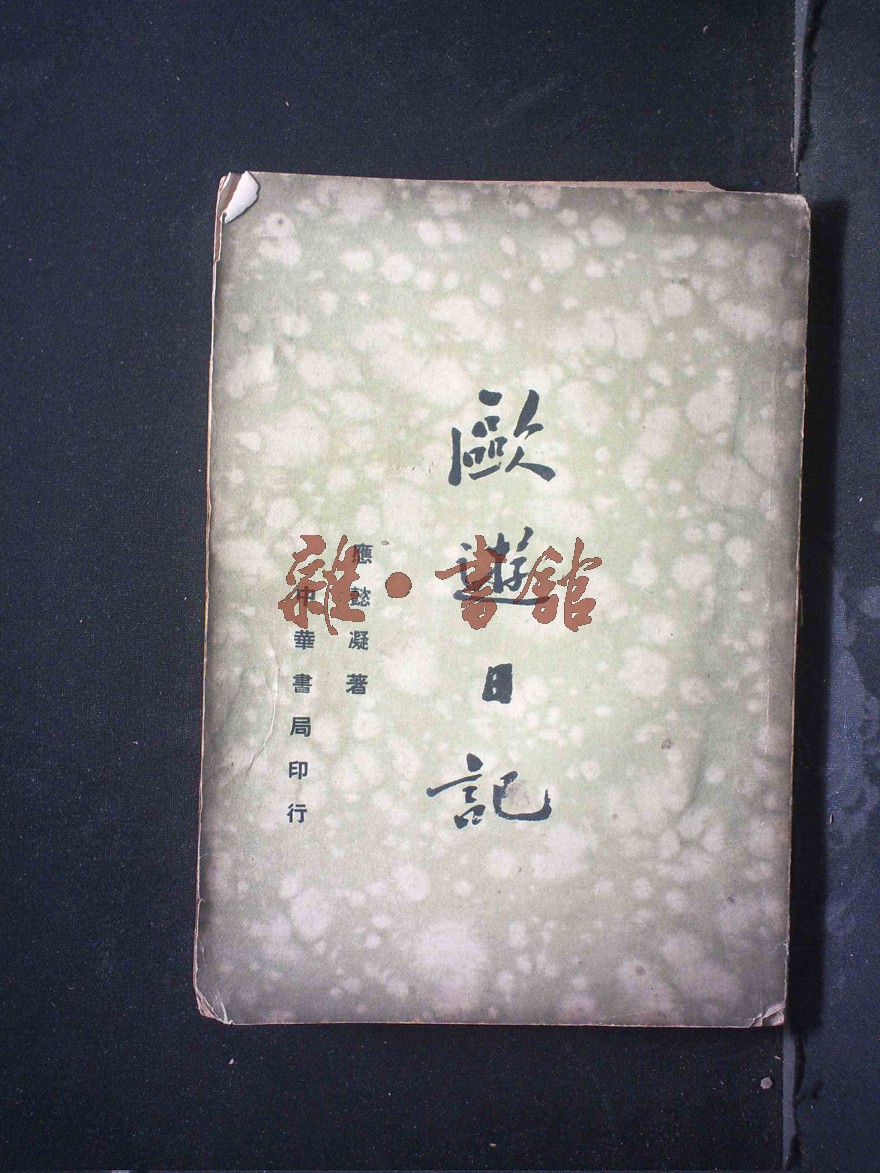 歐遊日記
應懿凝著
中華書局印行
雜·書館